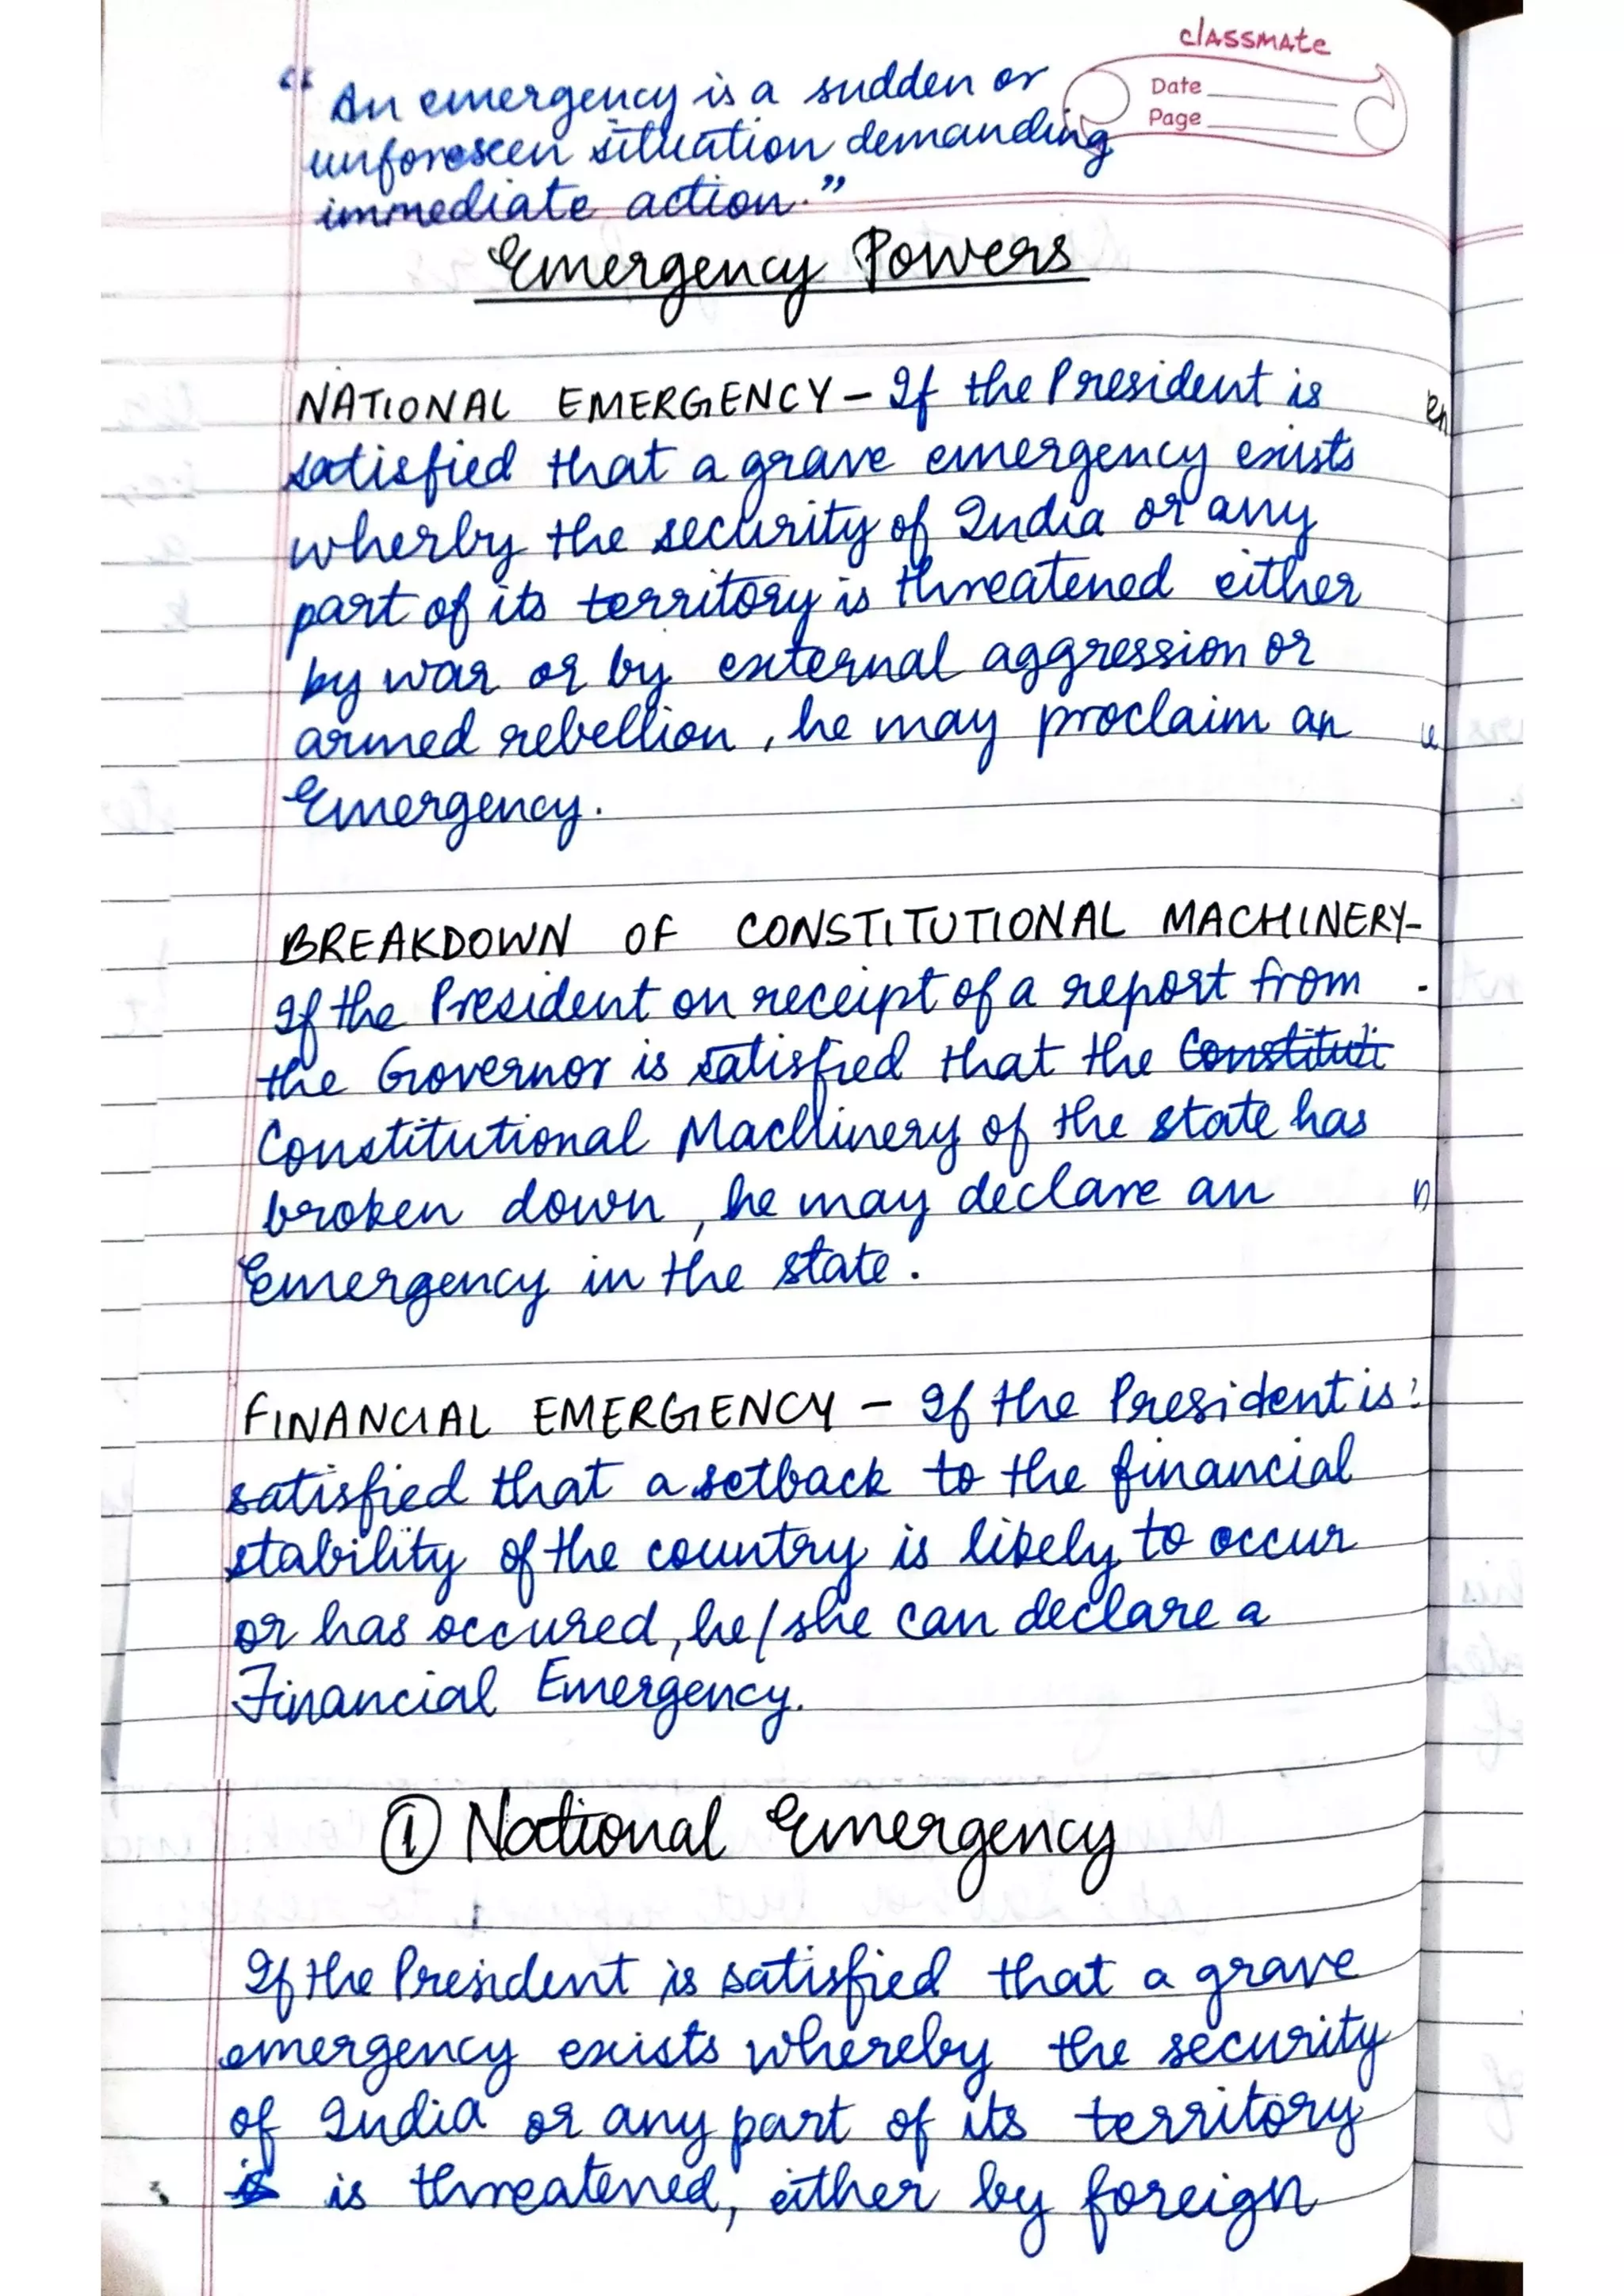 classmate
Date
Page
“An emergency is a sudden or
unforeseen situation demanding
immediate action.”
Emergency Powers
NATIONAL EMERGENCY – If the President is
satisfied that a grave emergency exists
wherby the security of India or any
part of its territory is threatened either
by war or by external aggression or
armed rebellion, he may proclaim an
Emergency.
BREAKDOWN OF CONSTITUTIONAL MACHINERY-
If the President on receipt of a report from
the Governor is satisfied that the Constituti
Constitutional Machinery of the state has
broken down, he may declare an
Emergency in the state.
FINANCIAL EMERGENCY – If the President is
satisfied that a setback to the financial
stability of the country is likely to occur
or has occured, he/she can declare a
Financial Emergency.
① National Emergency
If the President is satisfied that a grave
emergency exists whereby the security
of India or any part of its territory
is is threatened, either by foreign